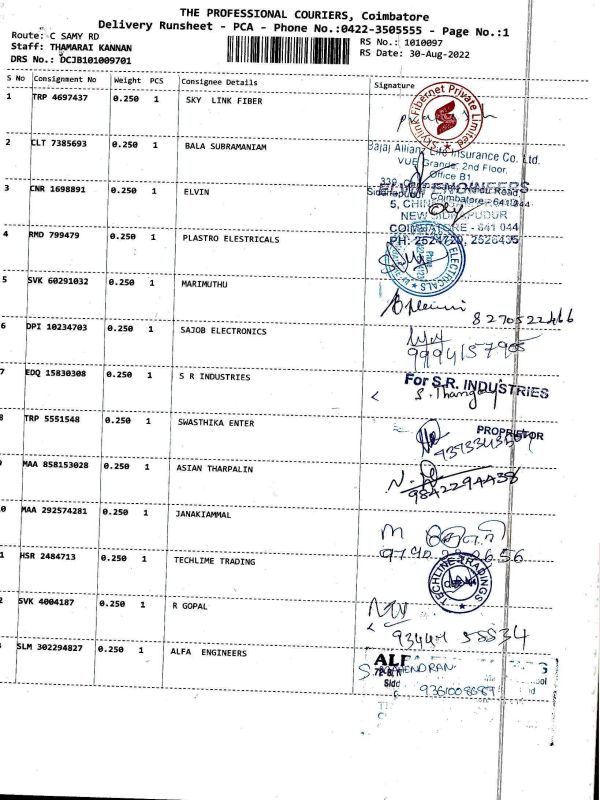 THE PROFESSIONAL COURIERS, Coimbatore
Delivery Runsheet - PCA - Phone No.:0422-3505555 - Page No.:1
Route: C SAMY RD
Staff: THAMARAI KANNAN
DRS No.: DCJB101009701
RS No.: 1010097
RS Date: 30-Aug-2022
S No Consignment No Weight PCS Consignee Details Signature
1 TRP 4697437 0.250 1 SKY LINK FIBER
Skylink Fibernet Private Limited
2 CLT 7385693 0.250 1 BALA SUBRAMANIAM
Bajaj Allianz Life Insurance Co. Ltd.
VUE Grande, 2nd Floor,
Office B1,
3 CNR 1698891 0.250 1 ELVIN
ELVIN ENGINEERS
Coimbatore - 641
NEW SIDHAPUDUR
COIMBATORE - 641 044
PH: 2524720, 2526435
4 RMD 799479 0.250 1 PLASTRO ELESTRICALS
ELECTRICALS
5 SVK 60291032 0.250 1 MARIMUTHU
8270522466
6 DPI 10234703 0.250 1 SAJOB ELECTRONICS
9994157905
7 EDQ 15830308 0.250 1 S R INDUSTRIES
For S.R. INDUSTRIES
S. Thangaraj
PROPRIETOR
8 TRP 5551548 0.250 1 SWASTHIKA ENTER
MAA 858153028 0.250 1 ASIAN THARPALIN
9842294438
0 MAA 292574281 0.250 1 JANAKIAMMAL
1 HSR 2484713 0.250 1 TECHLIME TRADING
TECHLINE TRADINGS
2 SVK 4004187 0.250 1 R GOPAL
93441 55534
SLM 302294827 0.250 1 ALFA ENGINEERS
ALF
9361008689